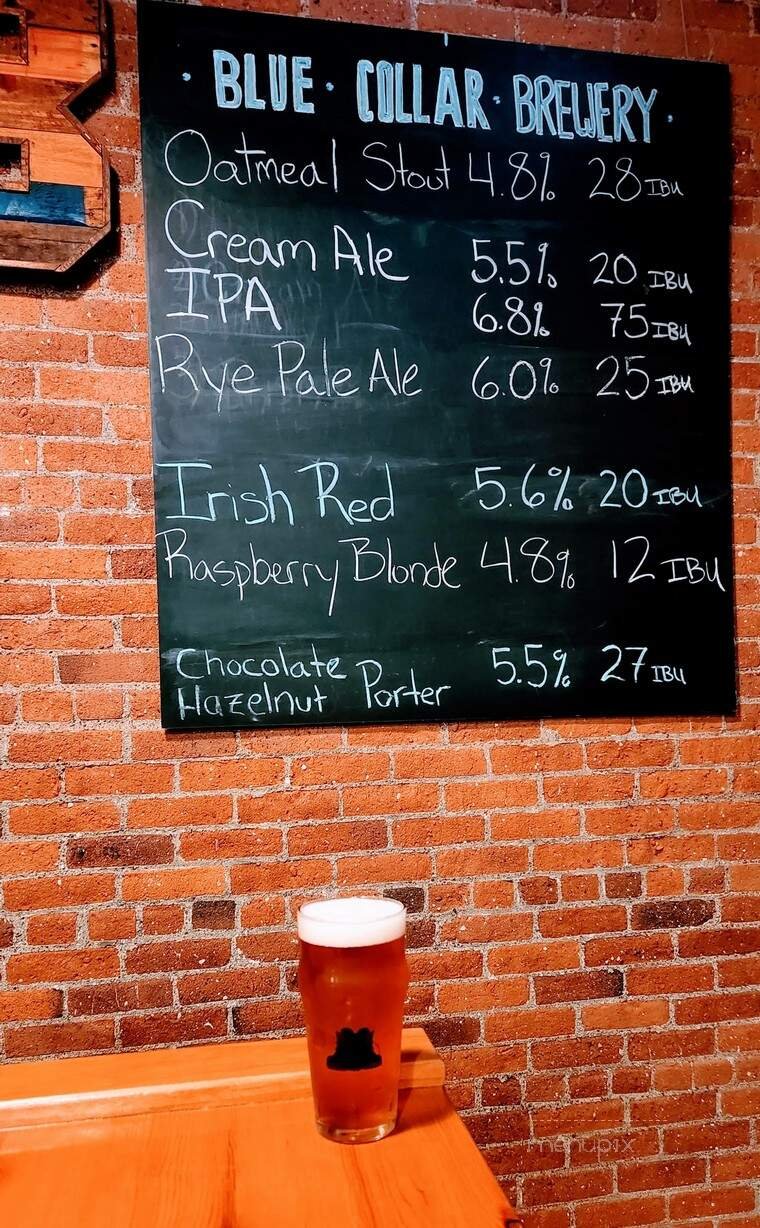 · BLUE · COLLAR · BREWERY ·
Oatmeal Stout 4.8% 28 IBU
Cream Ale 5.5% 20 IBU
IPA 6.8% 75 IBU
Rye Pale Ale 6.0% 25 IBU
Irish Red 5.6% 20 IBU
Raspberry Blonde 4.8% 12 IBU
Chocolate
Hazelnut Porter 5.5% 27 IBU
menupix